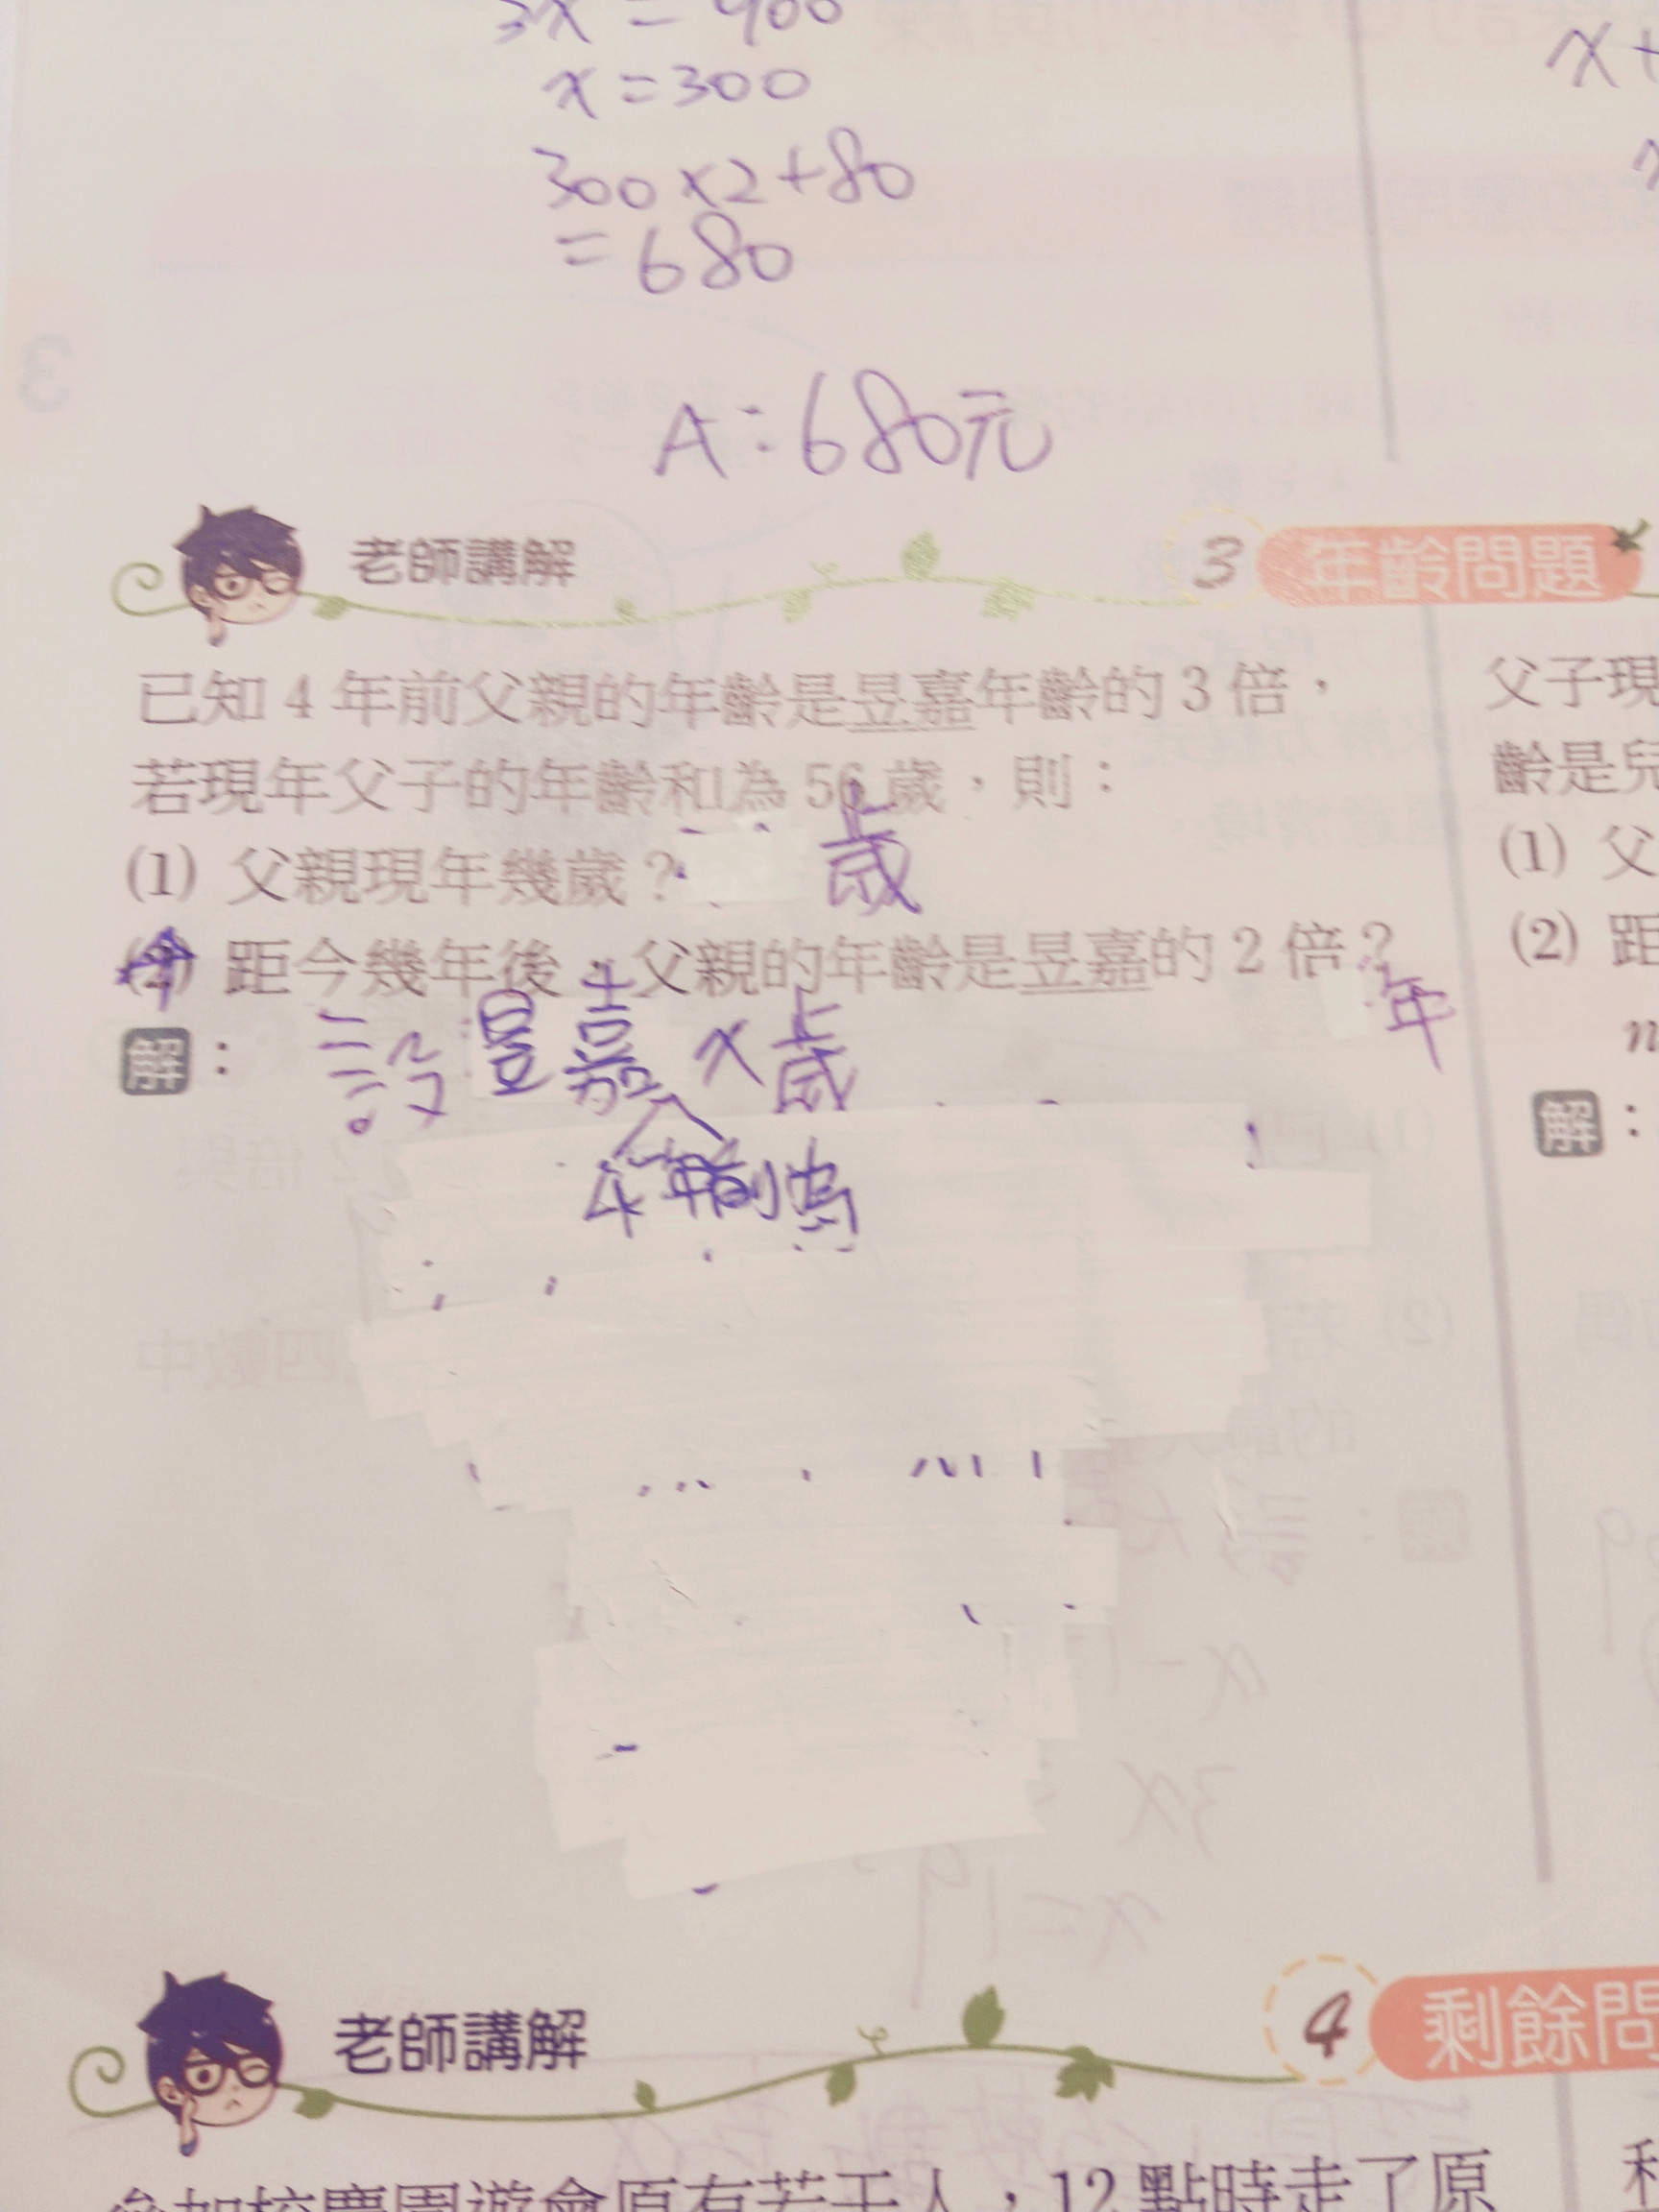 3x = 900
x = 300
300 x 2 + 80
= 680
A : 680元
x +
老師講解
3 年齡問題
已知 4 年前父親的年齡是昱嘉年齡的 3 倍，
若現年父子的年齡和為 56 歲，則：
(1) 父親現年幾歲？ 歲
(2) 距今幾年後，父親的年齡是昱嘉的 2 倍？ 年
解： 設昱嘉 x 歲
4年前為
父子現
齡是兒
(1) 父
(2) 距
解：
老師講解
4 剩餘問
參加校慶園遊會原有若干人，12 點時走了原